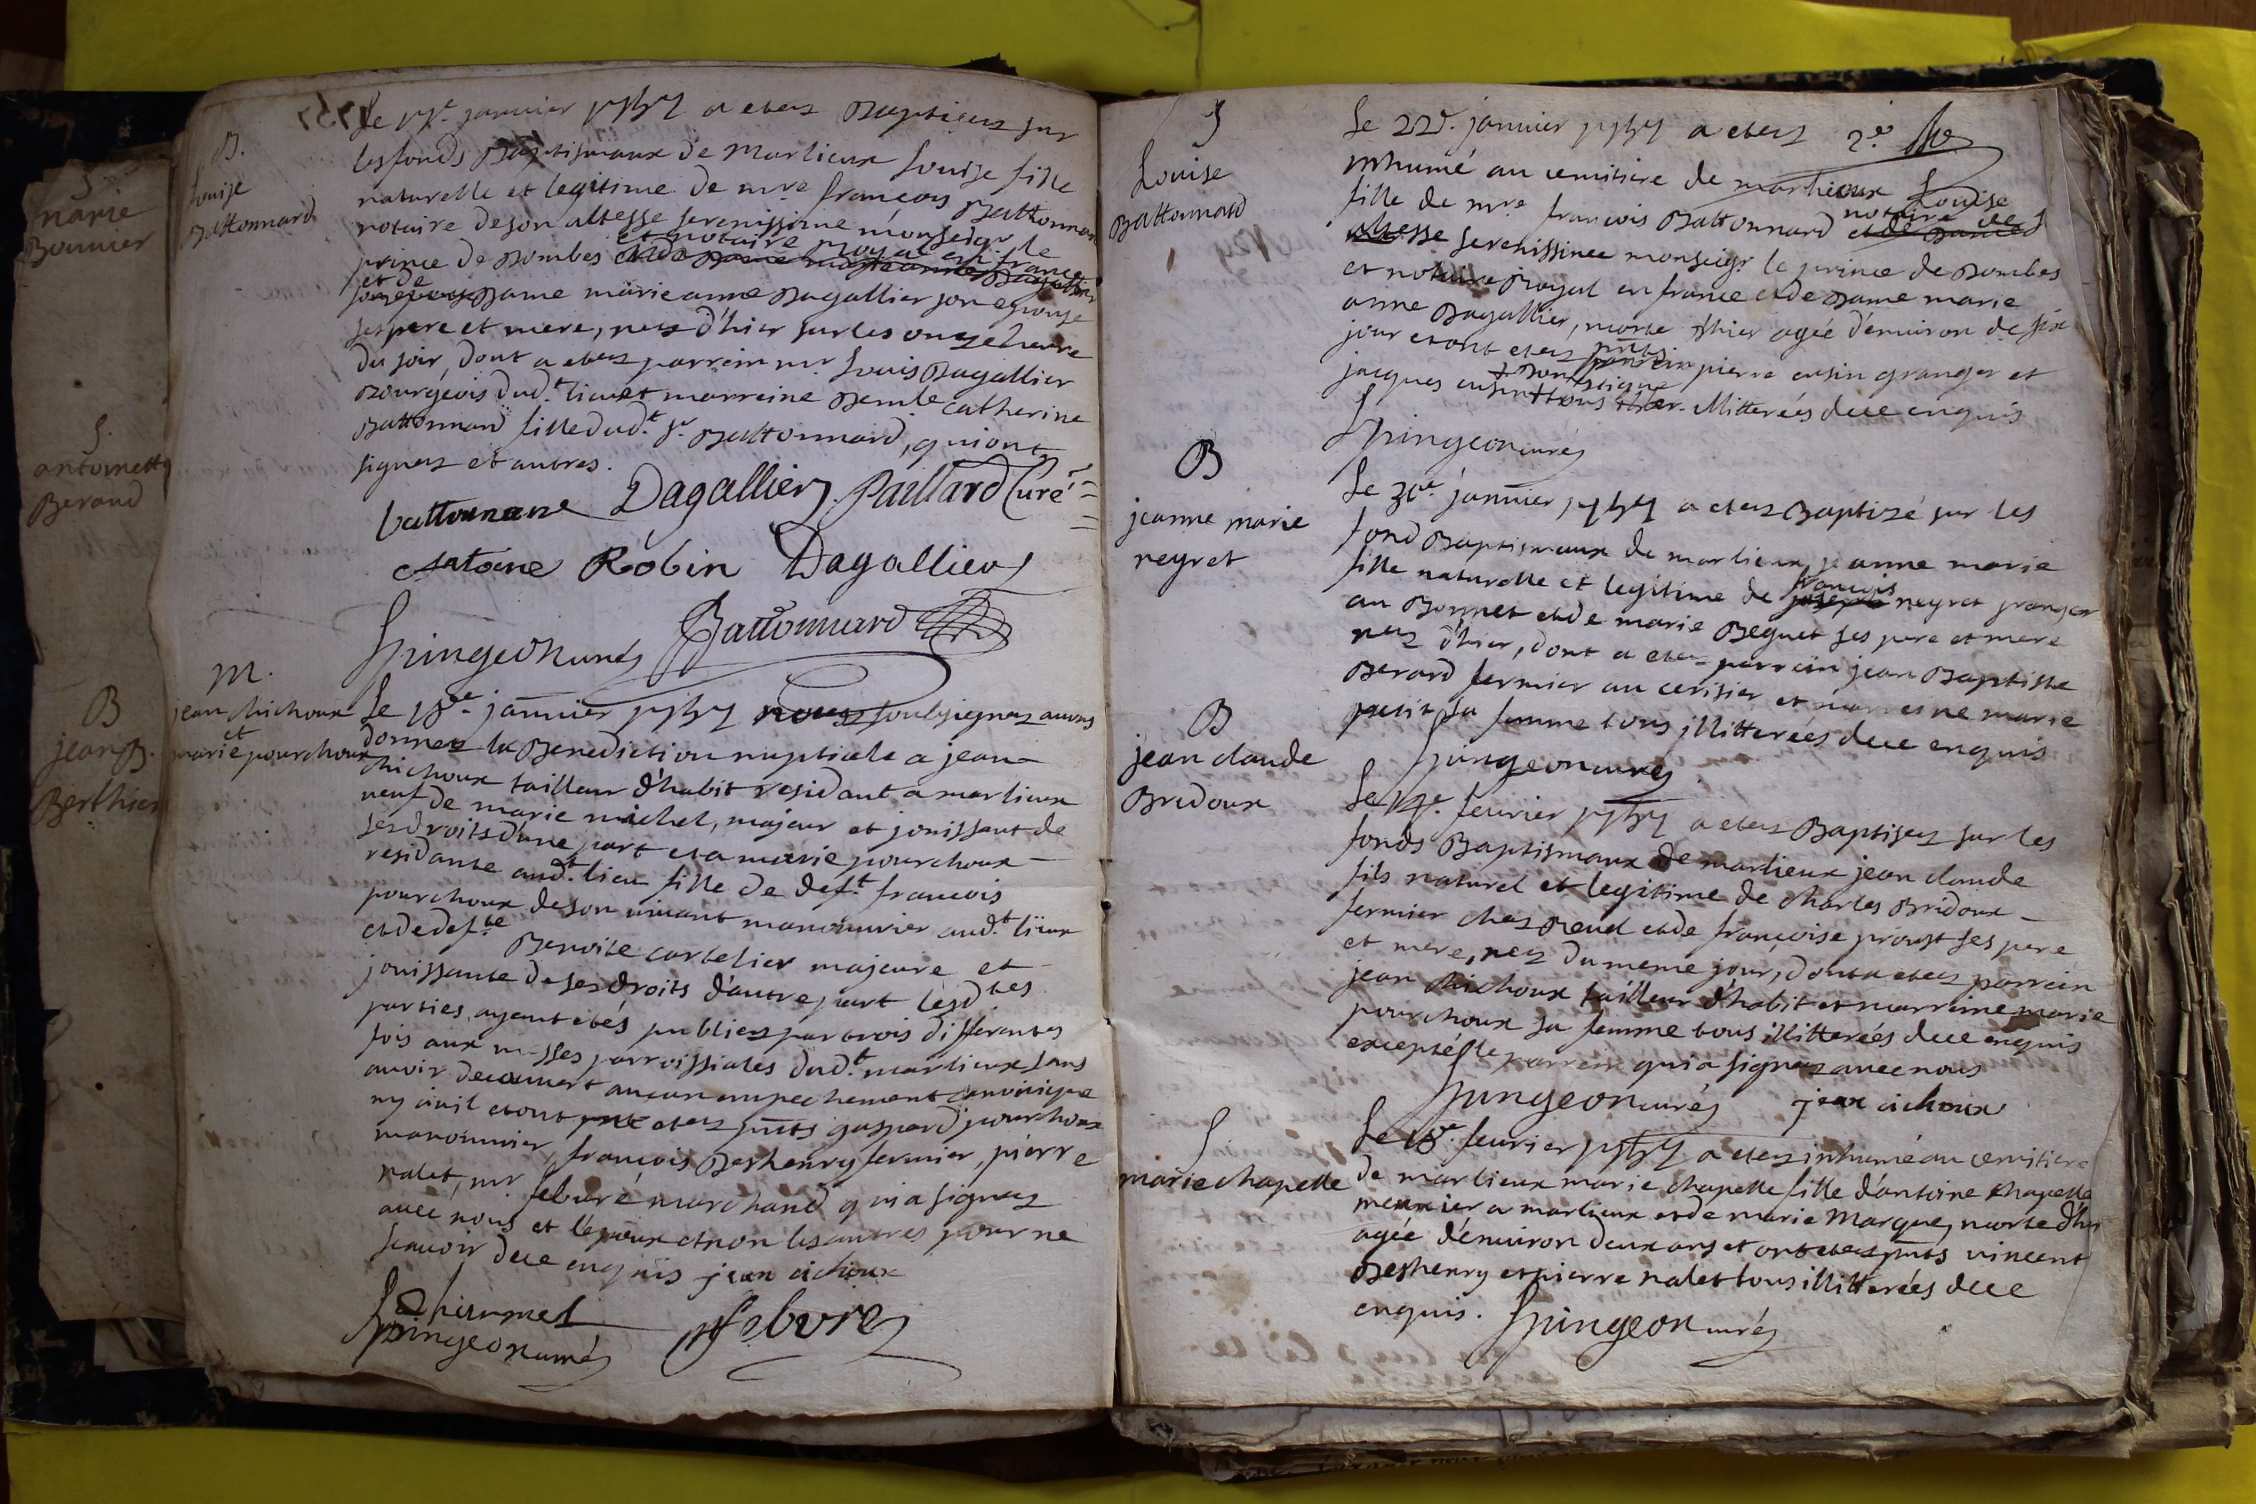 B.
Louise
Battonnard
Le 17e. janvier 1757 a etez Baptisez sur
les fonds Baptismaux de Marlieux Louise fille
naturelle et legitime de mre françois Battonnard
notaire de son altesse serenissime monseigr le
prince de Dombes et notaire royal en france
et de
Dame marie anne Dagallier son epouse
ses pere et mere, nez d'hier sur les onze heure
du soir, dont a etez parrein mr Louis Dagallier
Bourgeois dud.t lieu et marreine Demlle catherine
Battonnard fille dud.t sr. Battonnard, qui ont
signez et autres.
battonnard Dagallier Paillard Curé
Antoine Robin Dagallier
Spingeon curéz Battonnard
M.
jean chichoux
et
marie pourchoux
Le 18e. janvier 1757 nous soubsignez avons
donnez la Benediction nuptiale a jean
chichoux tailleur d'habit residant a marlieux
veuf de marie michel, majeur et jouissant de
ses droits d'une part et a marie pourchoux
residante aud.t lieu fille de def.t francois
pourchoux de son vivant manouvrier aud.t lieux
et de def.te Benoite cartelier majeure et
jouissante de ses droits d'autre part lesd.tes
parties ayent etés publiez par trois differentes
fois aux messes parroissiales dud.t marlieux sans
avoir decouvert aucun empechement canonique
ny civil et ont etez pnts gaspard pourchoux
manouvrier, françois Deshenry fermier, pierre
nalet, mr febvré marchand qui a signez
avec nous et l'epoux et non les autres pour ne
scavoir de ce enquis jean cichoux
Spingeon curéz febvre
S
Louise
Battonnard
Le 22e. janvier 1757 a etez
inhumé au cemitiere de marlieux Louise
fille de mre françois Battonnard notaire de s
altesse serenissime monseigr le prince de Dombes
et notaire Royal en france et de Dame marie
anne Dagallier, morte d'hier agée d'environ de six
jour et ont etez pnts pierre cusin granger et
jacques cusin domestique tous illitterées de ce enquis
Spingeon curéz
B
jeanne marie
neyret
Le 31e. janvier 1757 a etez Baptizé sur les
fond Baptismaux de marlieux jeanne marie
fille naturelle et legitime de françois neyret granger
au Bonnet et de marie Beguet ses pere et mere
nez d'hier, dont a etez parrein jean Baptiste
Berard fermier au cerisier et marreine marie
petit sa femme tous illitterées de ce enquis
Spingeon curéz
B
jean claude
Bridoux
Le 14e. fevrier 1757 a etez Baptisez sur les
fonds Baptismaux de marlieux jean claude
fils naturel et legitime de charles Bridoux
fermier chez Reud et de françoise proust ses pere
et mere, nez du meme jour, dont a etez parrein
jean chichoux tailleur d'habit et marreine marie
pourchoux sa femme tous illitterées de ce enquis
excepté le parrein qui a signez avec nous
Spingeon curéz jean cichoux
S
marie chapelle
Le 18e. fevrier 1757 a etez inhumé au cemitiere
de marlieux marie chapelle fille d'antoine chapelle
meunier a marlieux et de marie Marque, morte d'hier
agée d'environ deux ans et ont etez pnts vincent
Deshenry et pierre nalet tous illitterées de ce
enquis. Spingeon curéz
S
marie
Bonnier
S.
antoinette
Beraud
B
jean B.
Berthier